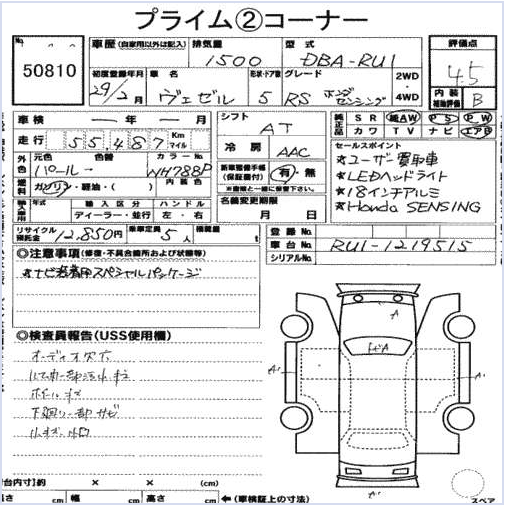 プライム②コーナー
No. 50810
車歴 (自家用以外は記入) 排気量 1500 型式 DBA-RU1
初度登録年月 29/2月 車名 ヴェゼル 形状・ドア数 5 グレード RS ホンダセンシング 2WD・4WD
評価点 4.5
内装補助評価 B
車検 ― 年 ― 月
走行 55,487 Km マイル
シフト AT
冷房 AAC
純正品 SR 純AW PS PW
カワ TV ナビ エアB
外色 元色 パール 色替 ― カラーNo. NH788P
燃料 ガソリン・軽油・( ) 内装色
新車整備手帳(保証書付) 有・無
※書類と一緒に保管下さい。
セールスポイント
★ユーザー買取車
★LEDヘッドライト
★18インチアルミ
★Honda SENSING
輸入車用 年式 輸入区分 ハンドル
ディーラー・並行 左・右
名義変更期限
月 日
リサイクル預託金 12,850円 乗車定員 5人 積載量 t
登録No.
車台No. RU1-1219515
シリアルNo.
◎注意事項(修復・不具合箇所および状態等)
★ナビ装着用スペシャルパッケージ
◎検査員報告(USS使用欄)
オーディオ欠品
ホイールキズ
下廻り一部サビ
小キズ 小凹
A
A'
A'
A'
(荷台内寸)約 × × (cm)
長さ cm 幅 cm 高さ cm ←(車検証上の寸法)
スペア